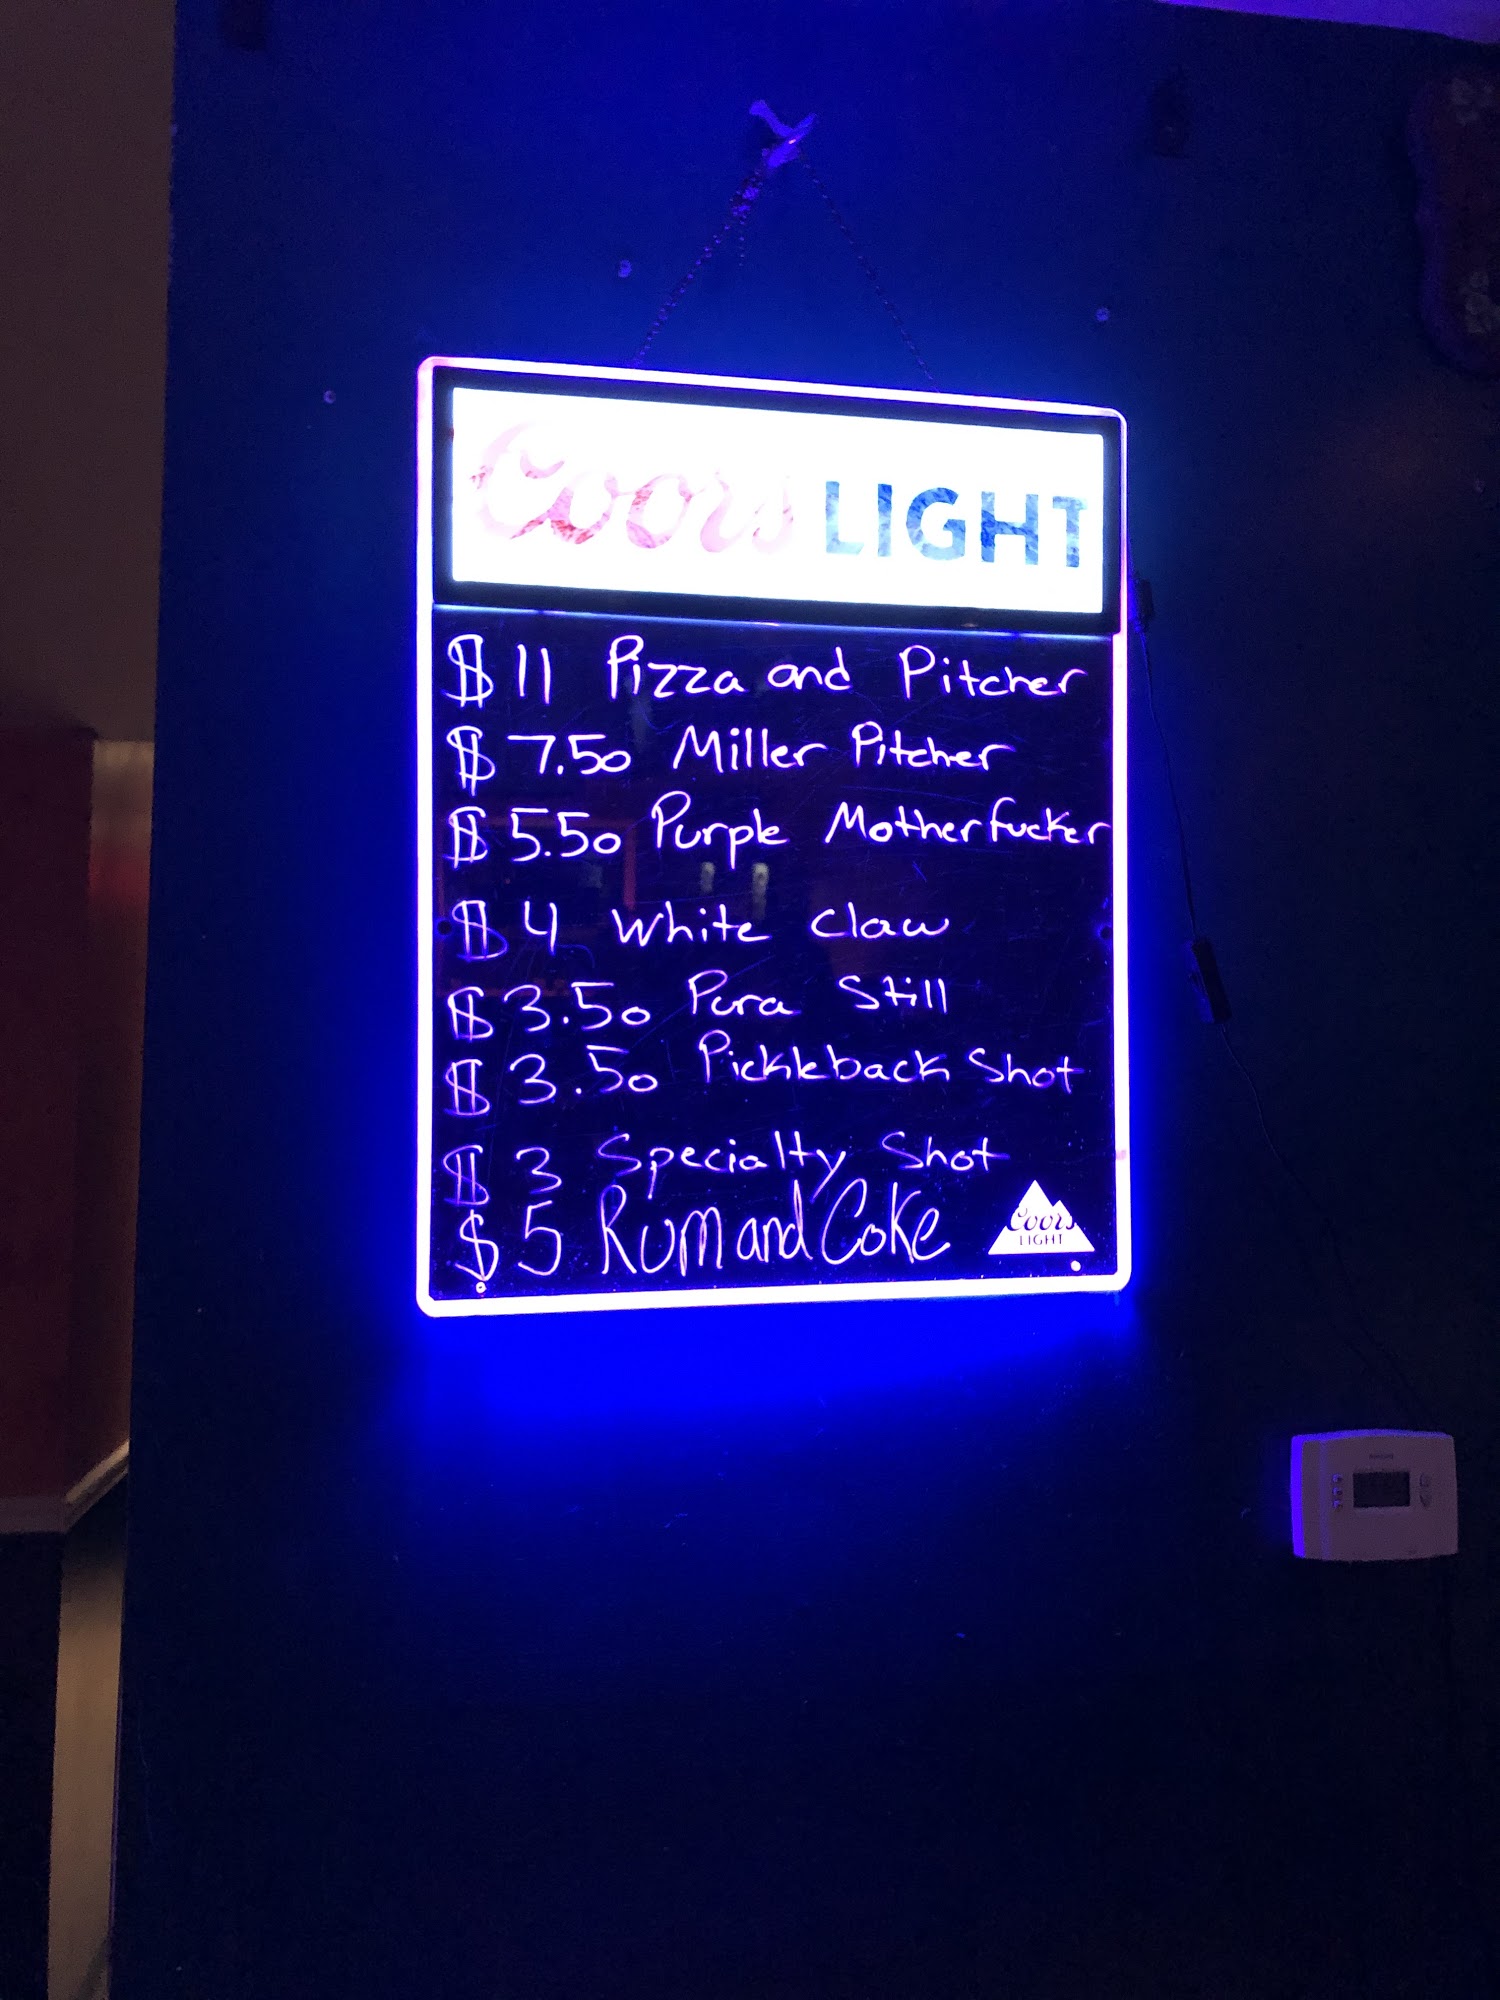 Coors LIGHT
$ 11 Pizza and Pitcher
$ 7.50 Miller Pitcher
$ 5.50 Purple Motherfucker
$ 4 White Claw
$ 3.50 Pura Still
$ 3.50 Pickleback Shot
$ 3 Specialty Shot
$ 5 Rum and Coke
Coors
LIGHT